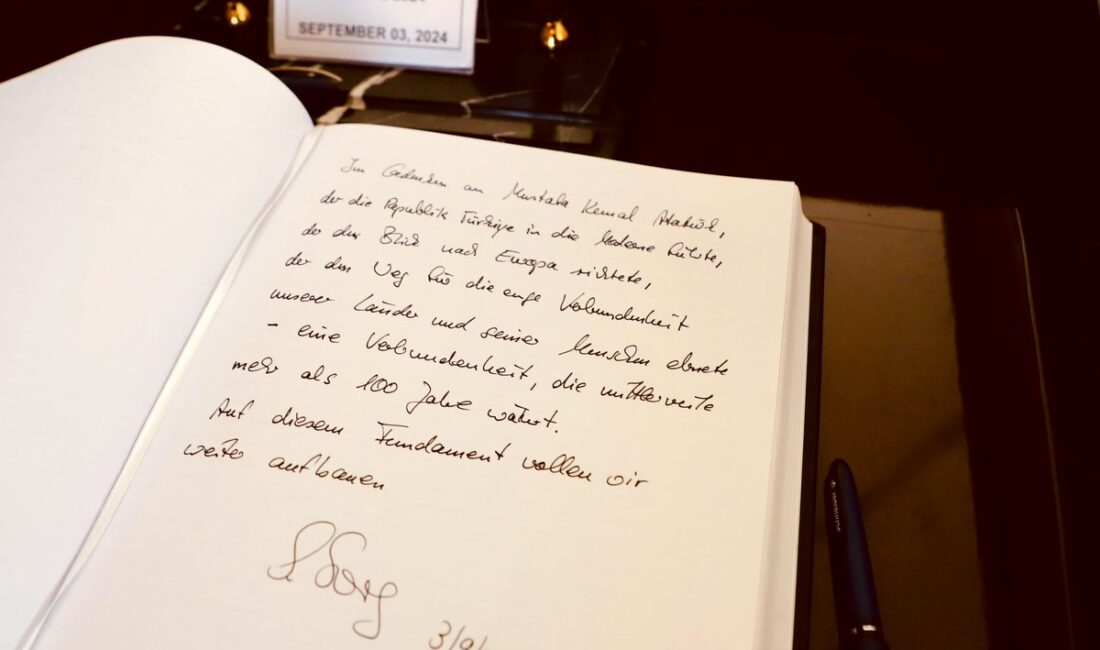 SEPTEMBER 03, 2024
Im Gedenken an Mustafa Kemal Atatürk,
der die Republik Türkiye in die Moderne führte,
der den Blick nach Europa richtete,
der den Weg für die enge Verbundenheit
unserer Länder und seiner Menschen ebnete
- eine Verbundenheit, die mittlerweile
mehr als 100 Jahre währt.
Auf diesem Fundament wollen wir
weiter aufbauen
3/9/